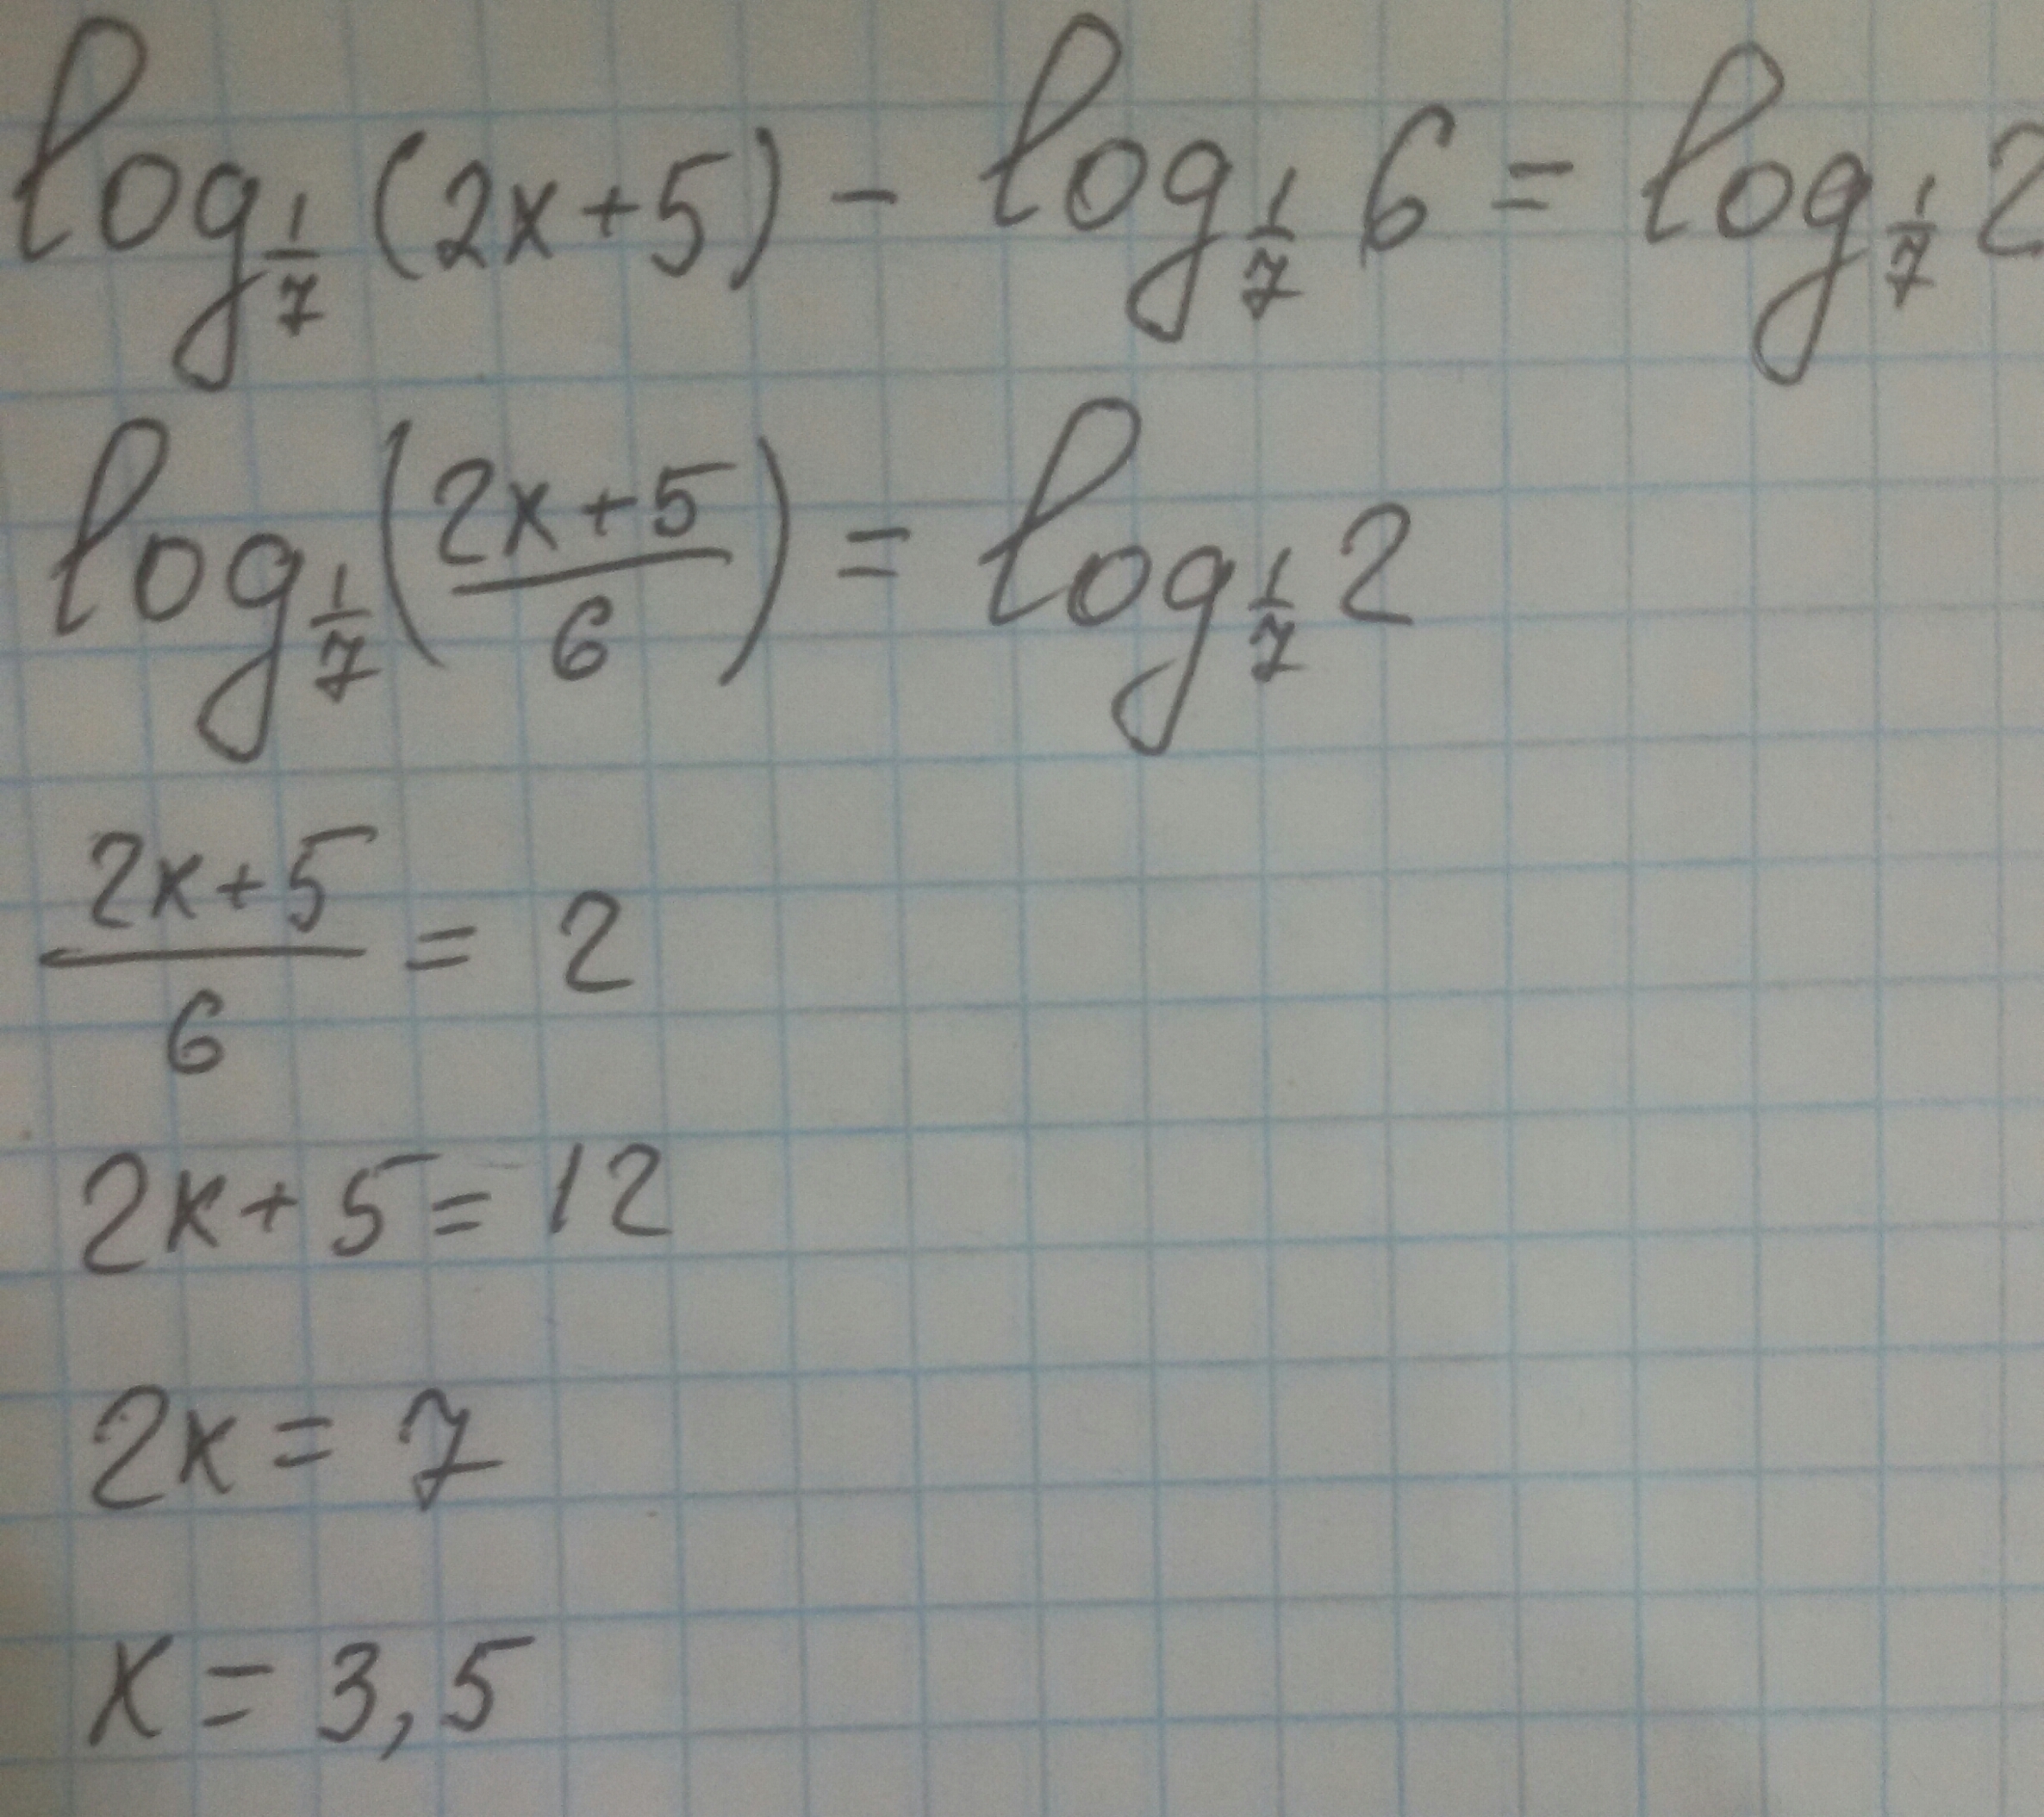 log_{1/7} (2x+5) - log_{1/7} 6 = log_{1/7} 2
log_{1/7} ((2x+5)/6) = log_{1/7} 2
(2x+5)/6 = 2
2x+5=12
2x=7
x=3,5